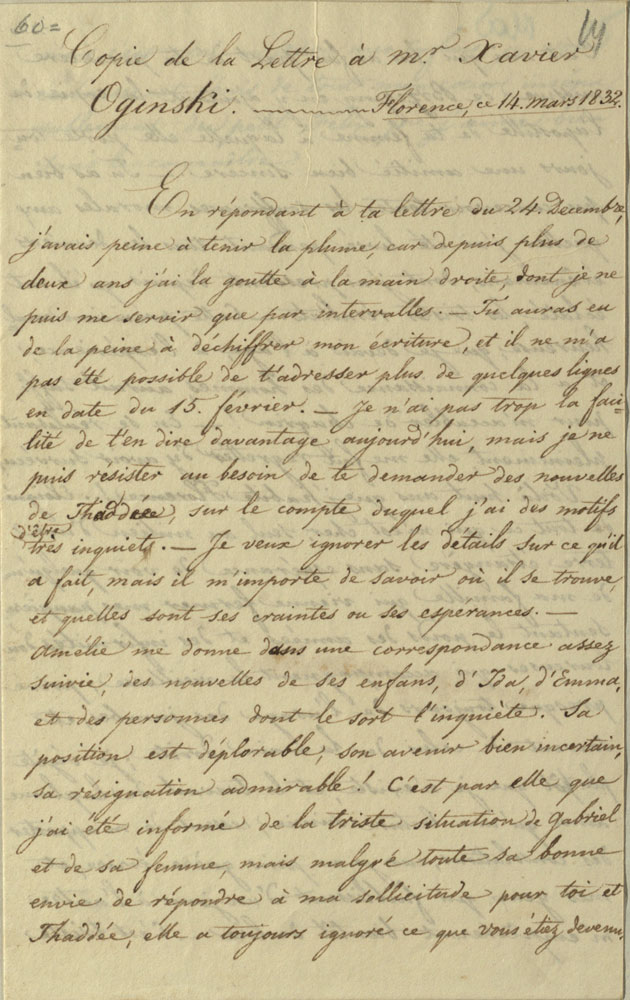 60=
Copie de la Lettre à mr Xavier
Oginski. Florence, ce 14. mars 1832.
En répondant à ta lettre du 24. Decembre,
j'avais peine à tenir la plume, car depuis plus de
deux ans j'ai la goutte à la main droite, dont je ne
puis me servir que par intervalles. — Tu auras eu
de la peine à déchiffrer mon écriture, et il ne m'a
pas été possible de t'adresser plus de quelques lignes
en date du 15. février. — Je n'ai pas trop la faci-
lité de t'en dire davantage aujourd'hui, mais je ne
puis resister au besoin de te demander des nouvelles
de Thaddée, sur le compte duquel j'ai des motifs
d'être
très inquiets. — Je veux ignorer les détails sur ce qu'il
a fait, mais il m'importe de savoir où il se trouve,
et quelles sont ses craintes ou ses espérances. —
Amélie me donne dans une correspondance assez
suivie, des nouvelles de ses enfans, d'Ida, d'Emma,
et des personnes dont le sort l'inquiète. Sa
position est déplorable, son avenir bien incertain,
sa résignation admirable! C'est par elle que
j'ai été informé de la triste situation de Gabriel
et de sa femme, mais malgré toute sa bonne
envie de répondre à ma sollicitude pour toi et
Thaddée, elle a toujours ignoré ce que vous étiez devenu.